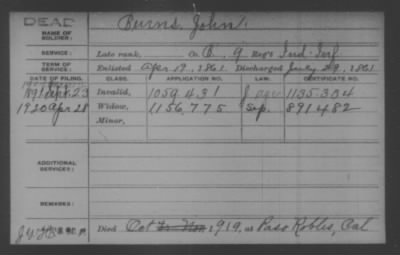 DEAD
NAME OF SOLDIER: Burns, John.
SERVICE: Late rank, Co. B, 9 Reg't Ind. Inf.
TERM OF SERVICE: Enlisted Apr 19, 1861. Discharged July 29, 1861
DATE OF FILING. CLASS. APPLICATION NO. LAW. CERTIFICATE NO.
Sept 23 Invalid, 1059,431 1135,304
1920 Apr 28 Widow, 1156,775 Sep. 891482
Minor,
ADDITIONAL SERVICES:
REMARKS:
Died Oct to Nov 1919, at Paso Robles, Cal